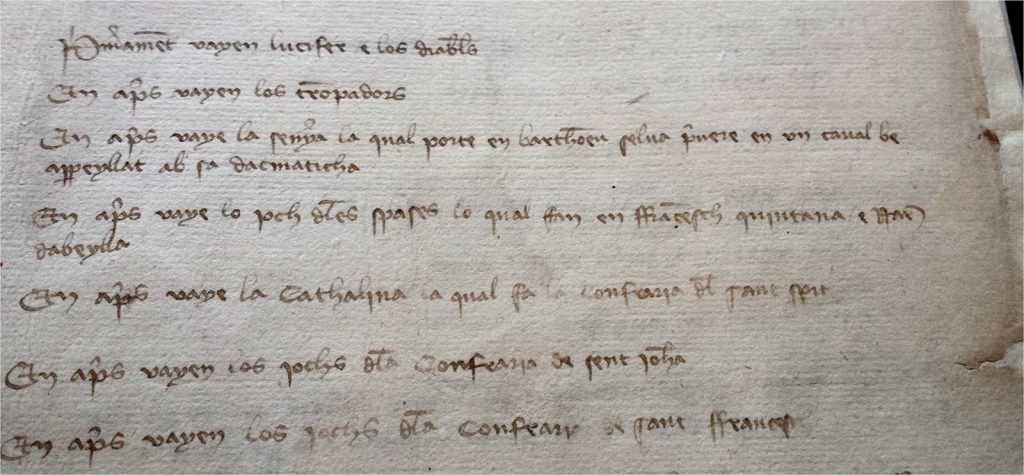 Primament vayen lucifer e los diabls
En aprs vayen los tropadors
En aprs vaye la senyra la qual porte en barthoeu selva prvere en un caval be
appeyllat ab sa dacmaticha
En aprs vaye lo joch dles spases lo qual ffan en ffracesch quintana e
dabeylla
En aprs vaye la Cathalina la qual fa la Confraria dl sant spit
En aprs vayen los jochs dla Confraria de sent joha
En aprs vayen los jochs dla Confrary de sant ffrancesc